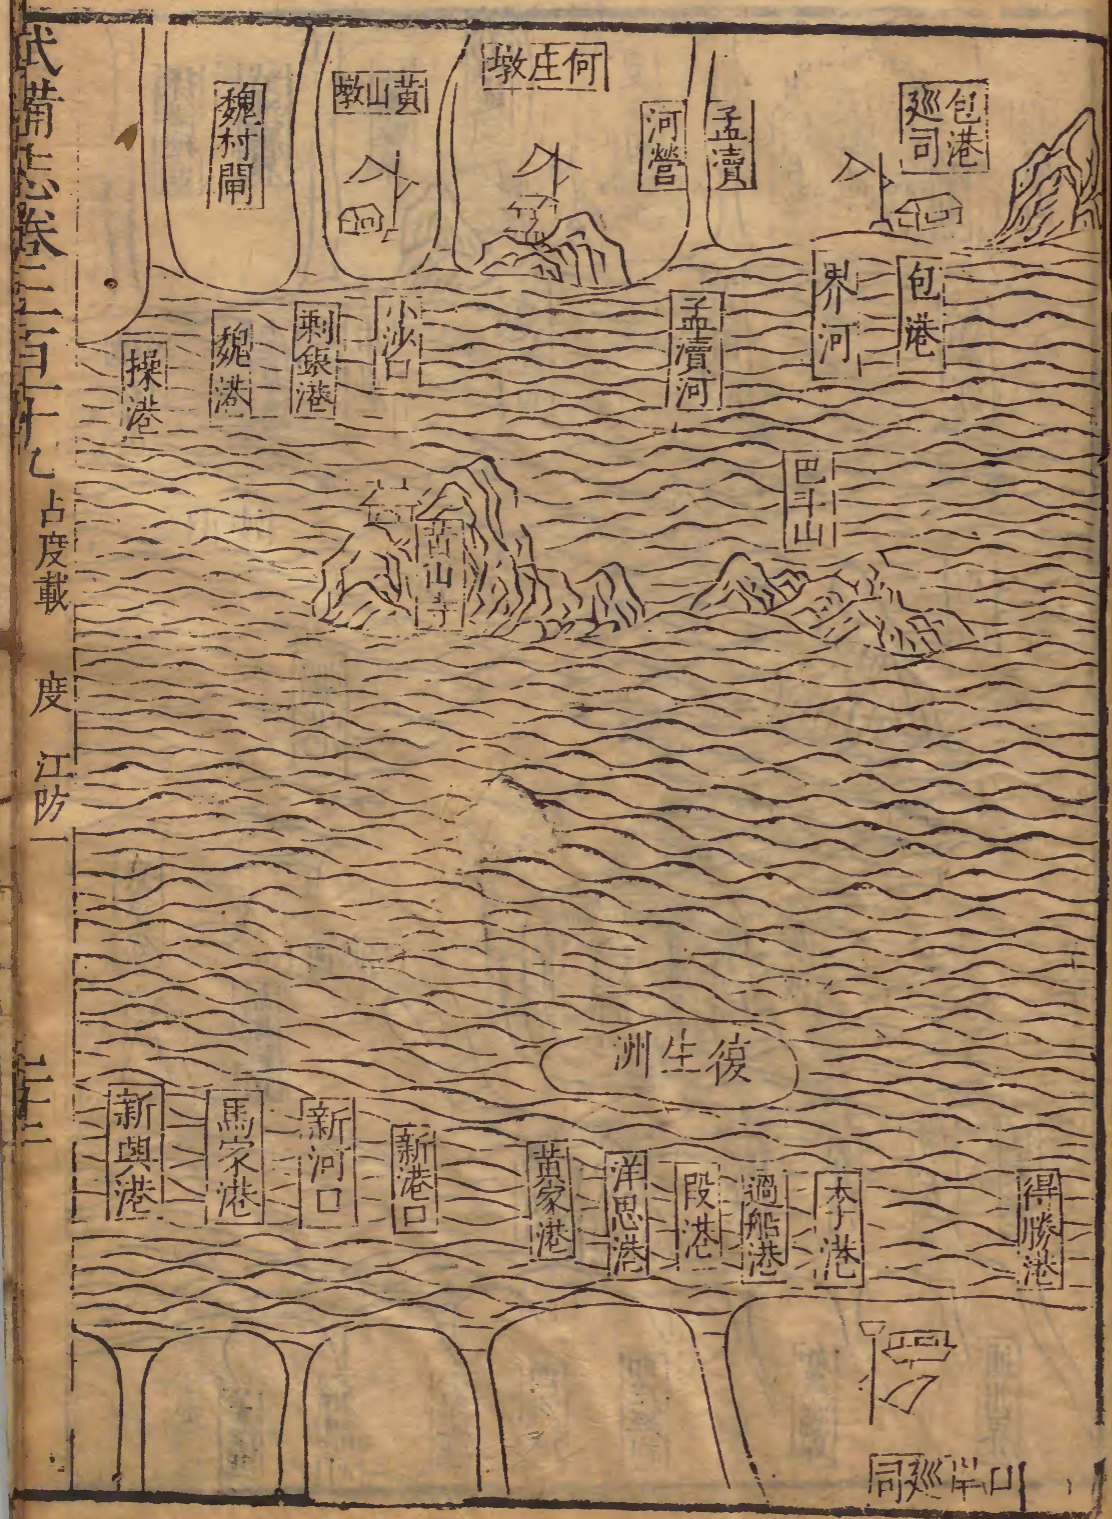 武備志卷二百十九
占度載
度
江防一
二十二
包港
廵司
孟瀆
河營
何庄墩
黃山墩
魏村閘
包港
界河
孟瀆河
小沙口
剩銀港
魏港
操港
巴斗山
山寺
復生洲
得勝港
李港
過船港
段港
洋思港
黃家港
新港口
新河口
馬家港
新興港
口岸廵司